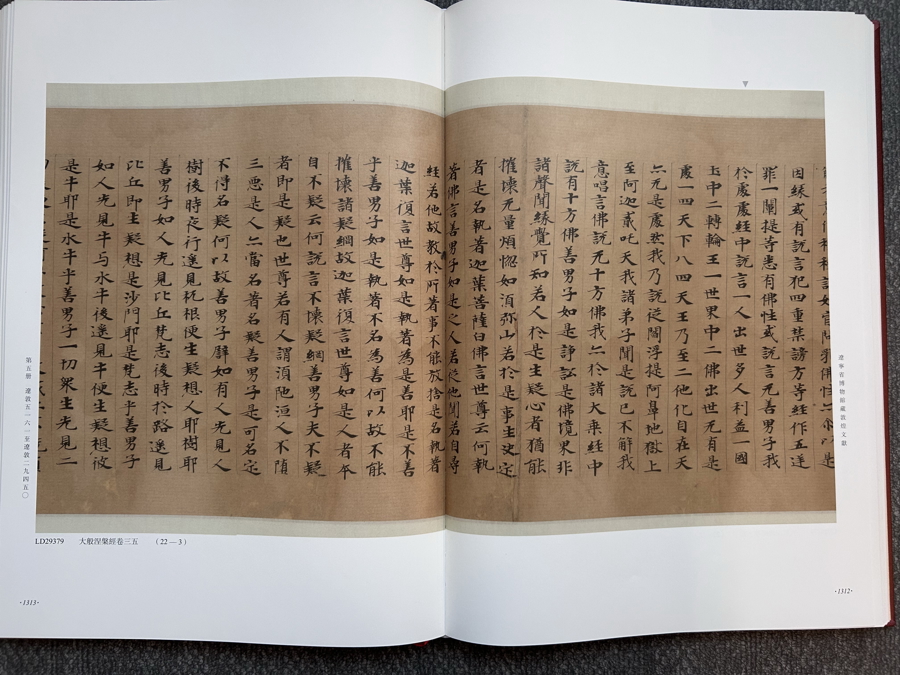 因緣或有說言犯四重禁謗方等經作五逆
罪一闡提等悉有佛性或說言无善男子我
於處處經中說言一人出世多人利益一國
土中二轉輪王一世界中二佛出世无有是
處一四天下八四天王乃至二他化自在天
亦无是處然我乃說從閻浮提阿鼻地獄上
至阿迦貳吒天我諸弟子聞是說已不解我
意唱言佛說无十方佛我亦於諸大乘經中
說有十方佛善男子如是諍訟是佛境界非
諸聲聞緣覺所知若人於是生疑心者猶能
摧壞无量煩惱如須弥山若於是事生決定
者是名執著迦葉菩薩白佛言世尊云何執
著佛言善男子如是之人若從他聞若自尋
經若他故教於所著事不能放捨是名執著
迦葉復言世尊如是執著為是善耶是不善
乎善男子如是執著不名為善何以故不能
摧壞諸疑綱故迦葉復言世尊如是人者本
自不疑云何說言不懷疑綱善男子夫不疑
者即是疑也世尊若有人謂須陁洹人不墮
三惡是人亦當名著名疑善男子是可名定
不得名疑何以故善男子譬如有人先見人
樹後時夜行遙見杌根便生疑想人耶樹耶
善男子如人先見比丘梵志後時於路遙見
比丘即生疑想是沙門耶是梵志乎善男子
如人先見牛与水牛後遙見牛便生疑想彼
是牛耶是水牛乎善男子一切眾生先見二
遼寧省博物館藏敦煌文獻
·1312·
LD29379 大般涅槃經卷三五 (22—3)
·1313·